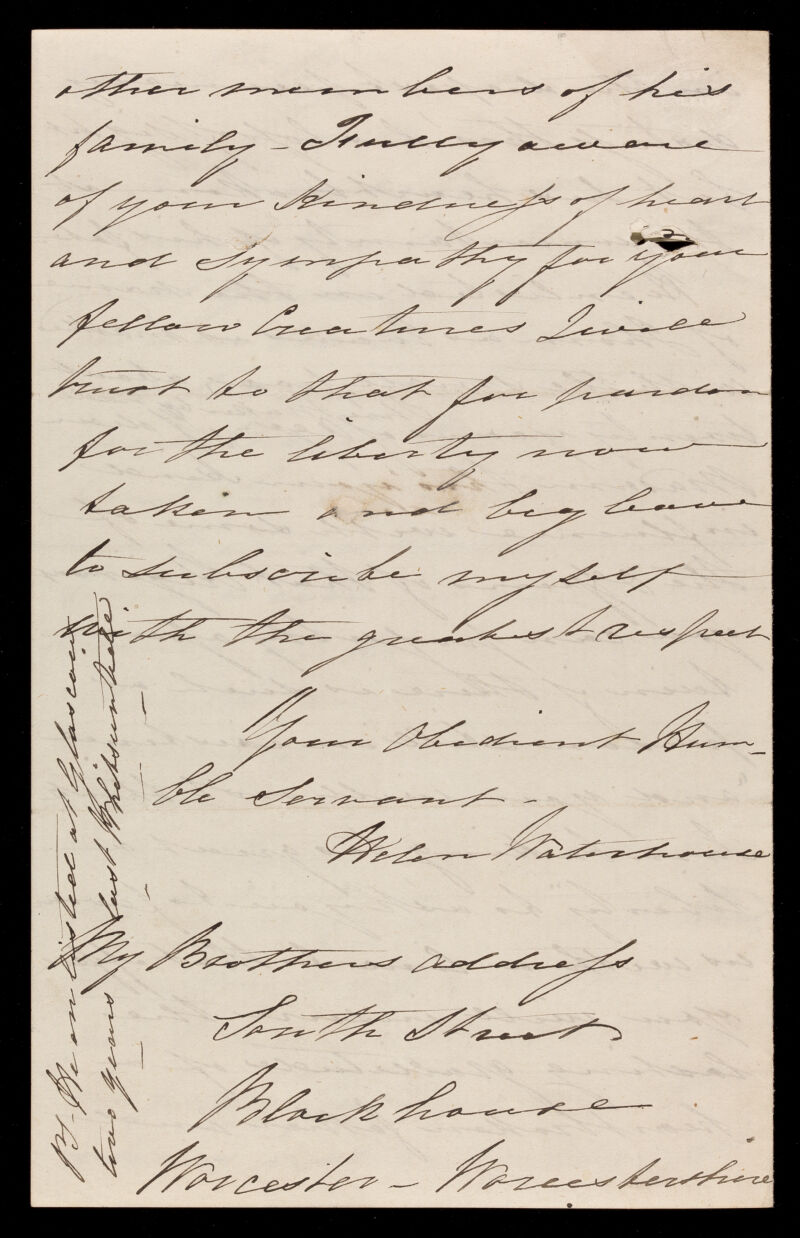 other members of his
family - Fully aware
of your Kindness of heart
and sympathy for your
fellow Creatures I will
trust to that for pardon
for the liberty now
taken and beg leave
to subscribe myself
with the greatest respect
Your Obedient Hum-
ble Servant -
Helen Waterhouse
My Brothers address
South Street
Blockhouse
Worcester - Worcestershire
PS - He enlisted at Glascow
two years last Whitsuntide